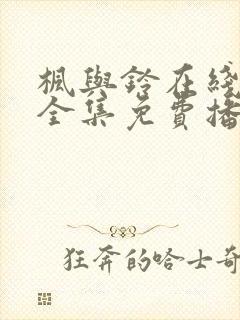 楓與鈴在綫
全集免費播
狂奔的哈士奇